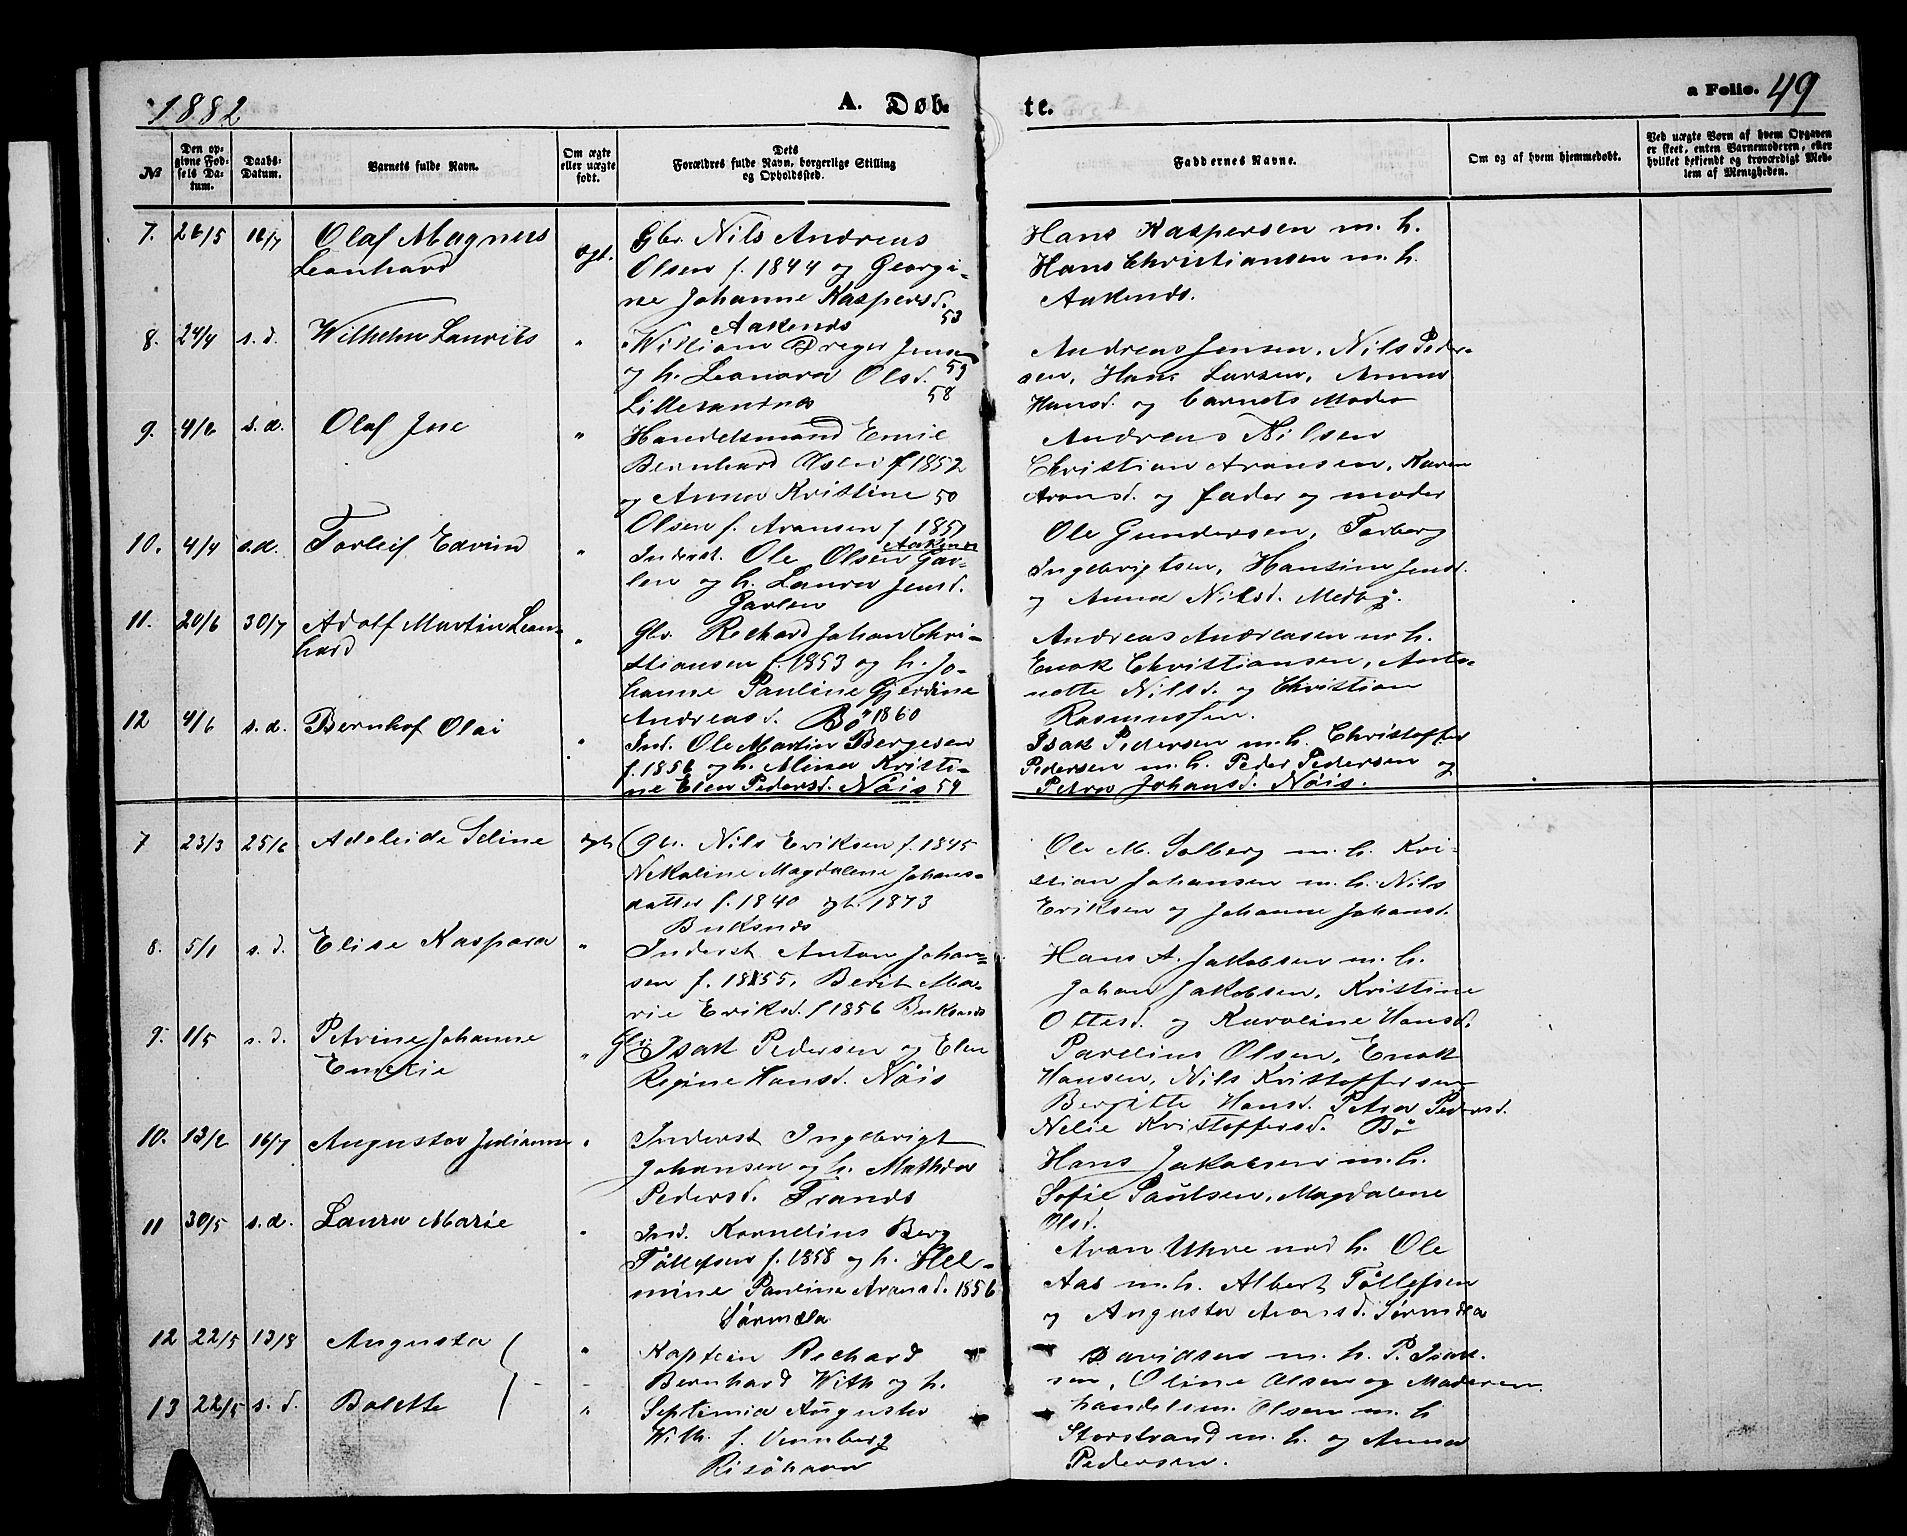 1882
A. Døb-
te.
a Folio. 49
№
Den op-
givne Fød-
sels Da-
tum.
Daabs-
Datum.
Barnets fulde Navn.
Om ægte
eller uægte
født.
Dets
Forældres fulde Navn, borgerlige Stilling
og Opholdssted.
Faddernes Navne.
Om og af hvem hjemmedøbt.
Ved uægte Børn af hvem Opgaven
er skeet, enten Barnemoderen, eller
hvilket bekjendt og troværdigt Med-
lem af Menigheden.
7. 26/5 16/7 Olaf Magnus
Leonhard
ægt.
Gbr. Nils Andreas
Olsen f. 1844 og Georgi-
ne Johanne Kaspersd.
Aakenes 53
Hans Kaspersen m. h.
Hans Christiansen m. h.
Aakenes.
8. 24/4 s. d. Wilhelm Laurits "
William Dreyer Jensen
og h. Leonora Olsd. 59
58
Andreas Jensen, Nils Peder-
sen, Hans Larsen, Anna
Hansd. og barnets Moder
9. 4/6 s. d. Olaf Jine "
Handelsmand Emil
Bernhard Olsen f 1852
og Anna Kristine 50
Olsen f. Aronsen f. 1851
Aakenes
Andreas Nilsen
Christian Aronsen, Karen
Aronsd. og fader og moder
10. 4/4 s. d. Torleif Edvin "
Inderst. Ole Olsen Gav-
len og h. Laura Jensd.
Gavlen
Ole Gundersen, Torberg
Ingebrigtsen, Hansine Jensd.
og Anna Nilsd. Medby.
11. 20/6 30/7 Adolf Martin Leon-
hard "
Gbr. Richard Johan Chri-
stiansen f. 1853 og h. Jo-
hanne Pauline Gjerdine
Andreasd. Bö 1860
Andreas Andreasen m h.
Enok Christiansen, Anto-
nette Nilsd. og Christian
Rasmussen.
12 4/6 s. d. Bernhof Olai "
Ind. Ole Martin Bergesen
f. 1856 og h. Mina Kristi-
ne Elen Pedersd. Nöis 59
Isak Pedersen m. h. Christoffer
Pedersen m. h. Peder Pedersen og
Petra Johansd. Nöis.
7 23/3 25/6 Adeleide Seline ægte
Gbr. Nils Eriksen f. 1845
Nekoline Magdalene Johans-
datter f. 1840 gt. 1873
Buksnes
Ole M. Solberg m. h. Kri-
stian Johansen m. h. Nils
Eriksen og Johanne Johansd.
8. 5/1 s. d. Elise Kaspara "
Inderst Anton Johan-
sen f. 1855, Berit Ma-
rie Eriksd. f 1856 Buksnes
Hans A. Jakobsen m. h.
Johan Jakobsen, Kristine
Ottesd. og Karoline Hansd.
9. 1/5 s. d. Petrine Johanne
Emelie "
Gbr. Isak Pedersen og Elen
Regine Hansd. Nöis
Parelius Olsen, Enok
Hansen, Nils Kristoffersen
Bergitte Hansd. Petra Pedersd.
Nelie Kristoffersd. Bö
10. 13/2 16/7 Augusta Julianne "
Inderst Ingebrigt
Johansen og h. Mathea
Pedersd. Trands
Hans Jakobsen m. h.
Sofie Paulsen, Magdalene
Olsd.
11 30/5 s. d. Laura Marie "
Ind. Kornelius Berg
Töllefsen f. 1858 og h. Hel-
mine Pauline Aronsd. 1856
Sørmæla
Aron Uhre med h. Ole
Aas m. h. Albert Töllefsen
og Augusta Aronsd. Sørmæla
12 22/5 13/8 Augusta "
13 22/5 s. d. Bolette "
Kaptein Richard
Bernhard With og h.
Septimia Augusta
With f. Vennberg
Risöhavn
Davidsen m. h. P. Isak-
sen, Oline Olsen og Moderen
handelsm. Olsen m. h
Storstrand m. h. og Anna
Pedersen.